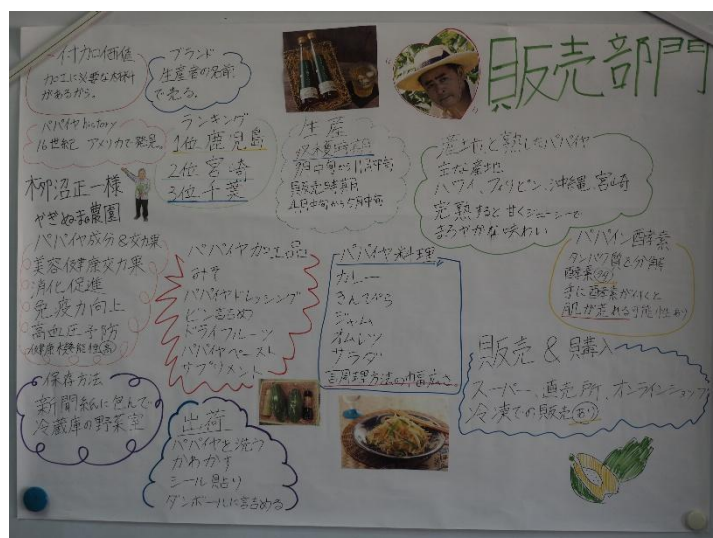 販売部門
付加価値
加工に必要な材料
があるから。
ブランド
生産者の名前
で売る。
パパイヤhistory
16世紀 アメリカで発見。
ランキング
1位 鹿児島
2位 宮崎
3位 千葉
生産
収穫時期
9月中旬から11月中旬
販売時期
産地と熟したパパイヤ
主な産地
ハワイ、フィリピン、沖縄、宮崎
完熟すると甘くジューシーで
まろやかな味わい
柳沼正一様
やぎぬま農園
パパイヤ成分&効果
美容健康効果
消化促進
免疫力向上
高血圧予防
パパイヤ加工品
みそ
パパイヤドレッシング
ビン詰め
ドライフルーツ
パパイヤペースト
サプリメント
パパイヤ料理
カレー
きんぴら
ジャム
オムレツ
サラダ
調理方法の幅広さ
パパイン酵素
タンパク質を分解
酵素
手に酵素がつくと
肌が荒れる可能性あり
販売&購入
スーパー、直売所、オンラインショップ
冷凍での販売あり
保存方法
新聞紙に包んで
冷蔵庫の野菜室
出荷
パパイヤを洗う
かわかす
シール貼り
ダンボールに詰める